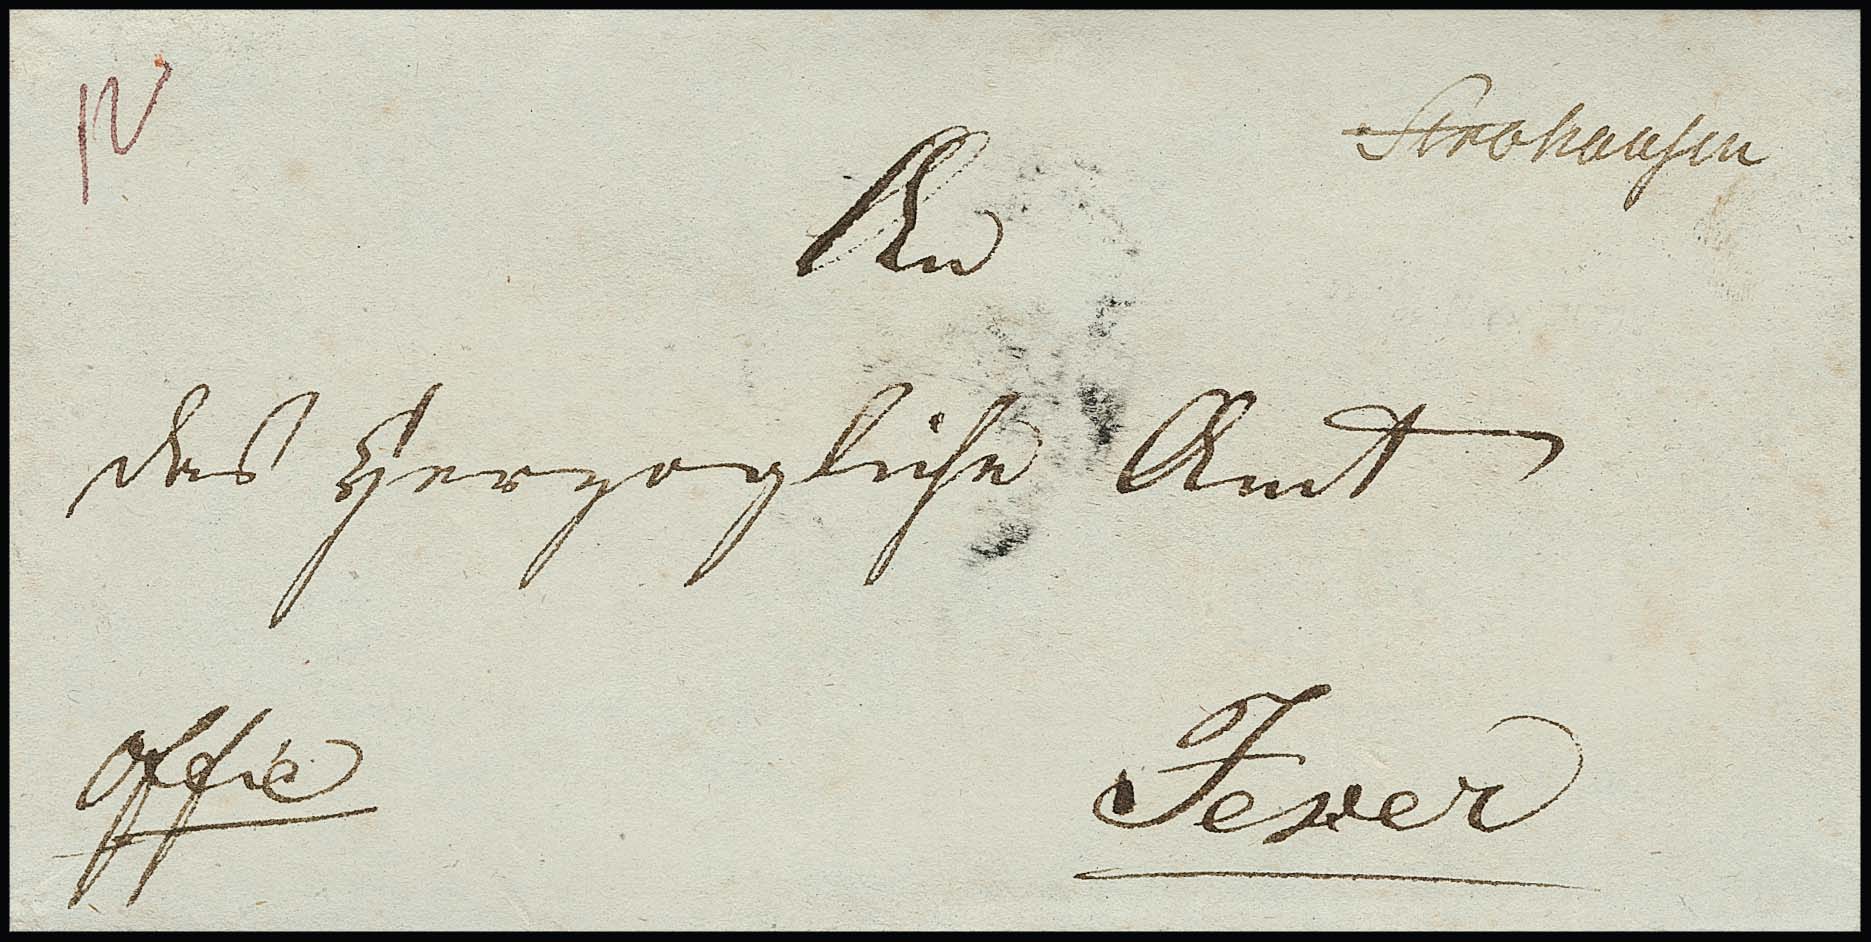 Strohausen
An
das Herzogliche Amt
Jever
Offic